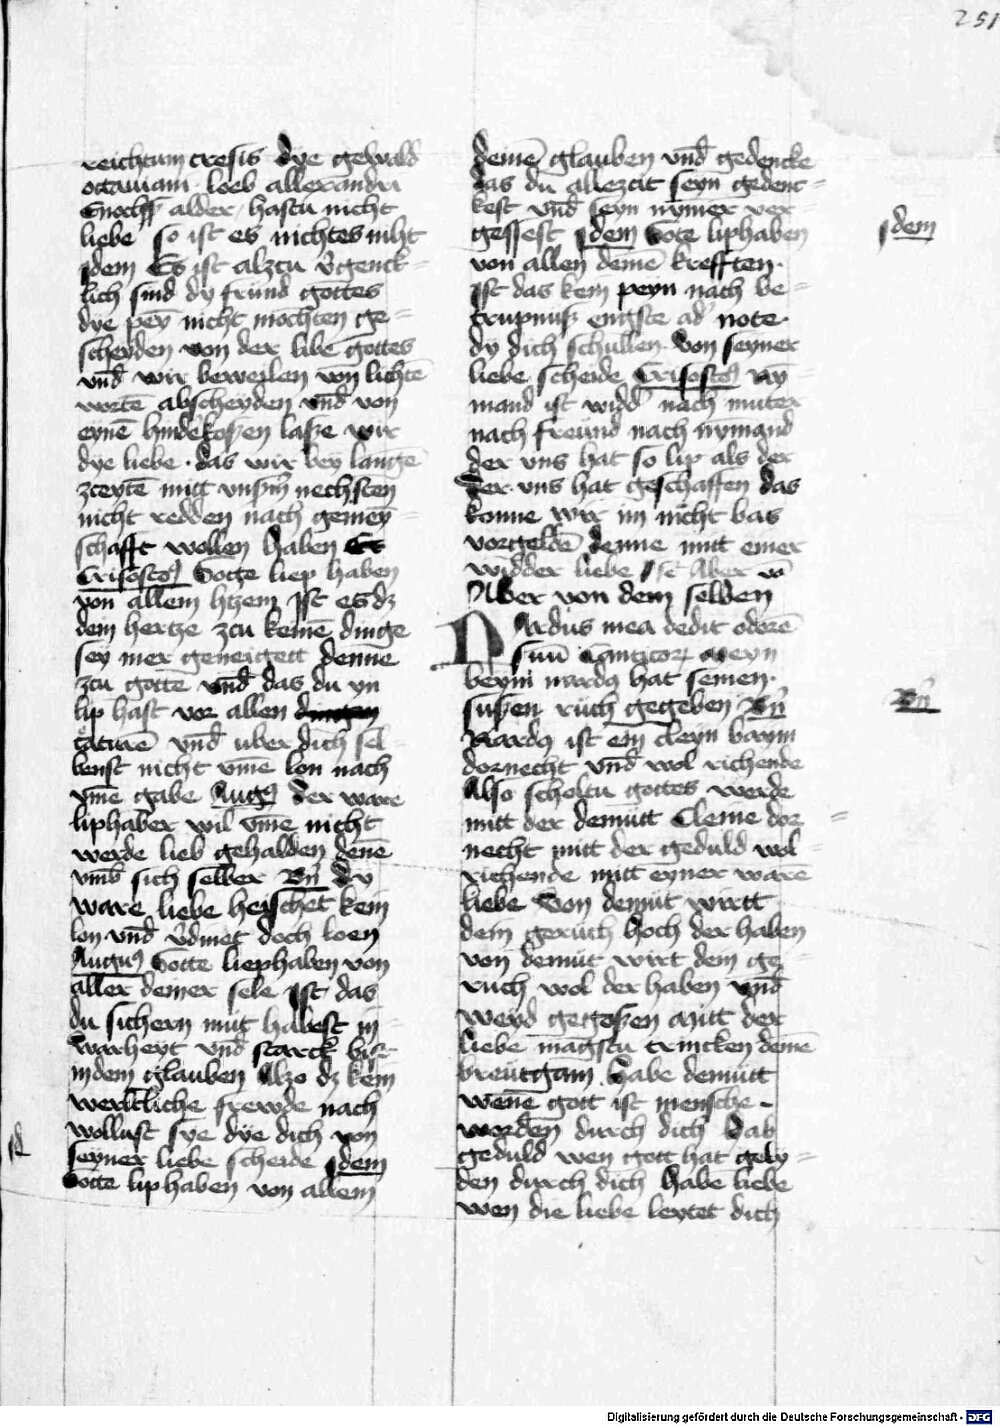 251
reichtum cresis dye gewald
octauiani · loeb allexandri
Enochs alder / hastu nicht
liebe so ist es nichtes niht
jdem Es ist alzcu
lich sind dy frund gottes
dye pey nicht mochten ge=
scheyden von der libe gottes
vnd wir beweilen von lichtē
wortē abscheyden vnd von
eynē laße wir
dye liebe · das wir bey langē
zceytē mitt nechsten
nicht redden nach gemey=
schafft wollen haben Es
Crisosto Gotte liep haben
von allem htzem Jst es dz
dem hertze zcu kemē dinge
sey mer geneigett denne
zcu gotte vnd das du yn
lip hast vor allen
vnd uber dich sel=
benst nicht vme lon nach
vme gabe Augꝯ der ware
liphaber wil vme nicht
werde lieb gehalden denē
vmb sich selber Bn̄ dy
ware liebe heischet kein
lon vnd doch loen
Augus Gotte liephaben von
aller deiner sele Jst das
du sichern mut habest in=
warheyt vnd starck bist
indem glauben Alzo dz kein
werltliche frewde nach
wollust sye dye dich von
seyner liebe scheide jdem
Gotte liphaben von allem
jd
deinē glauben vnd gedencke
das du allezcit seyn gedenc=
kest vnd seyn nymer ver=
gessest jdem Gote liphaben
von allen deinē krefften ·
Jst das kein peyn nach be=
trupnuß engste ad note ·
dy dich schullen · von seyner
liebe scheide Crisostoꝯ ny=
mand ist widd nach muter
nach freund nach nymand
der vns hat so lip als der
der · vns hat geschaffen das
konne wir im nicht bas
vorgeldē denne mitt einer
widder liebe
Aber von dem selben
Nardus mea dedit odorē
suū Canticorꝝ Meyn
beym nardꝯ hat seinen ·
sußen ruch gegeben Bn̄
Nardꝯ ist ein cleyn baym
dornecht vnd wol richende
Also scholtu gottes werde
mitt der demutt Cleine dor=
necht mitt der geduld wol=
richende mitt eyner warē
liebe Von demut wirtt
dem geruch hoch der haben
von demut wirt dem ge=
ruch wol der haben vnd
weyd gegoßen Mitt der
liebe magstu trincken deinē
breutgam · Habe demutt
wenē gott ist mensche ·
worden durch dich Hab
geduld wen gott hat gely=
den durch dich Habe liebe
wen die liebe leytet dich
jdem
Bn̄
Digitalisierung gefördert durch die Deutsche Forschungsgemeinschaft - DFG